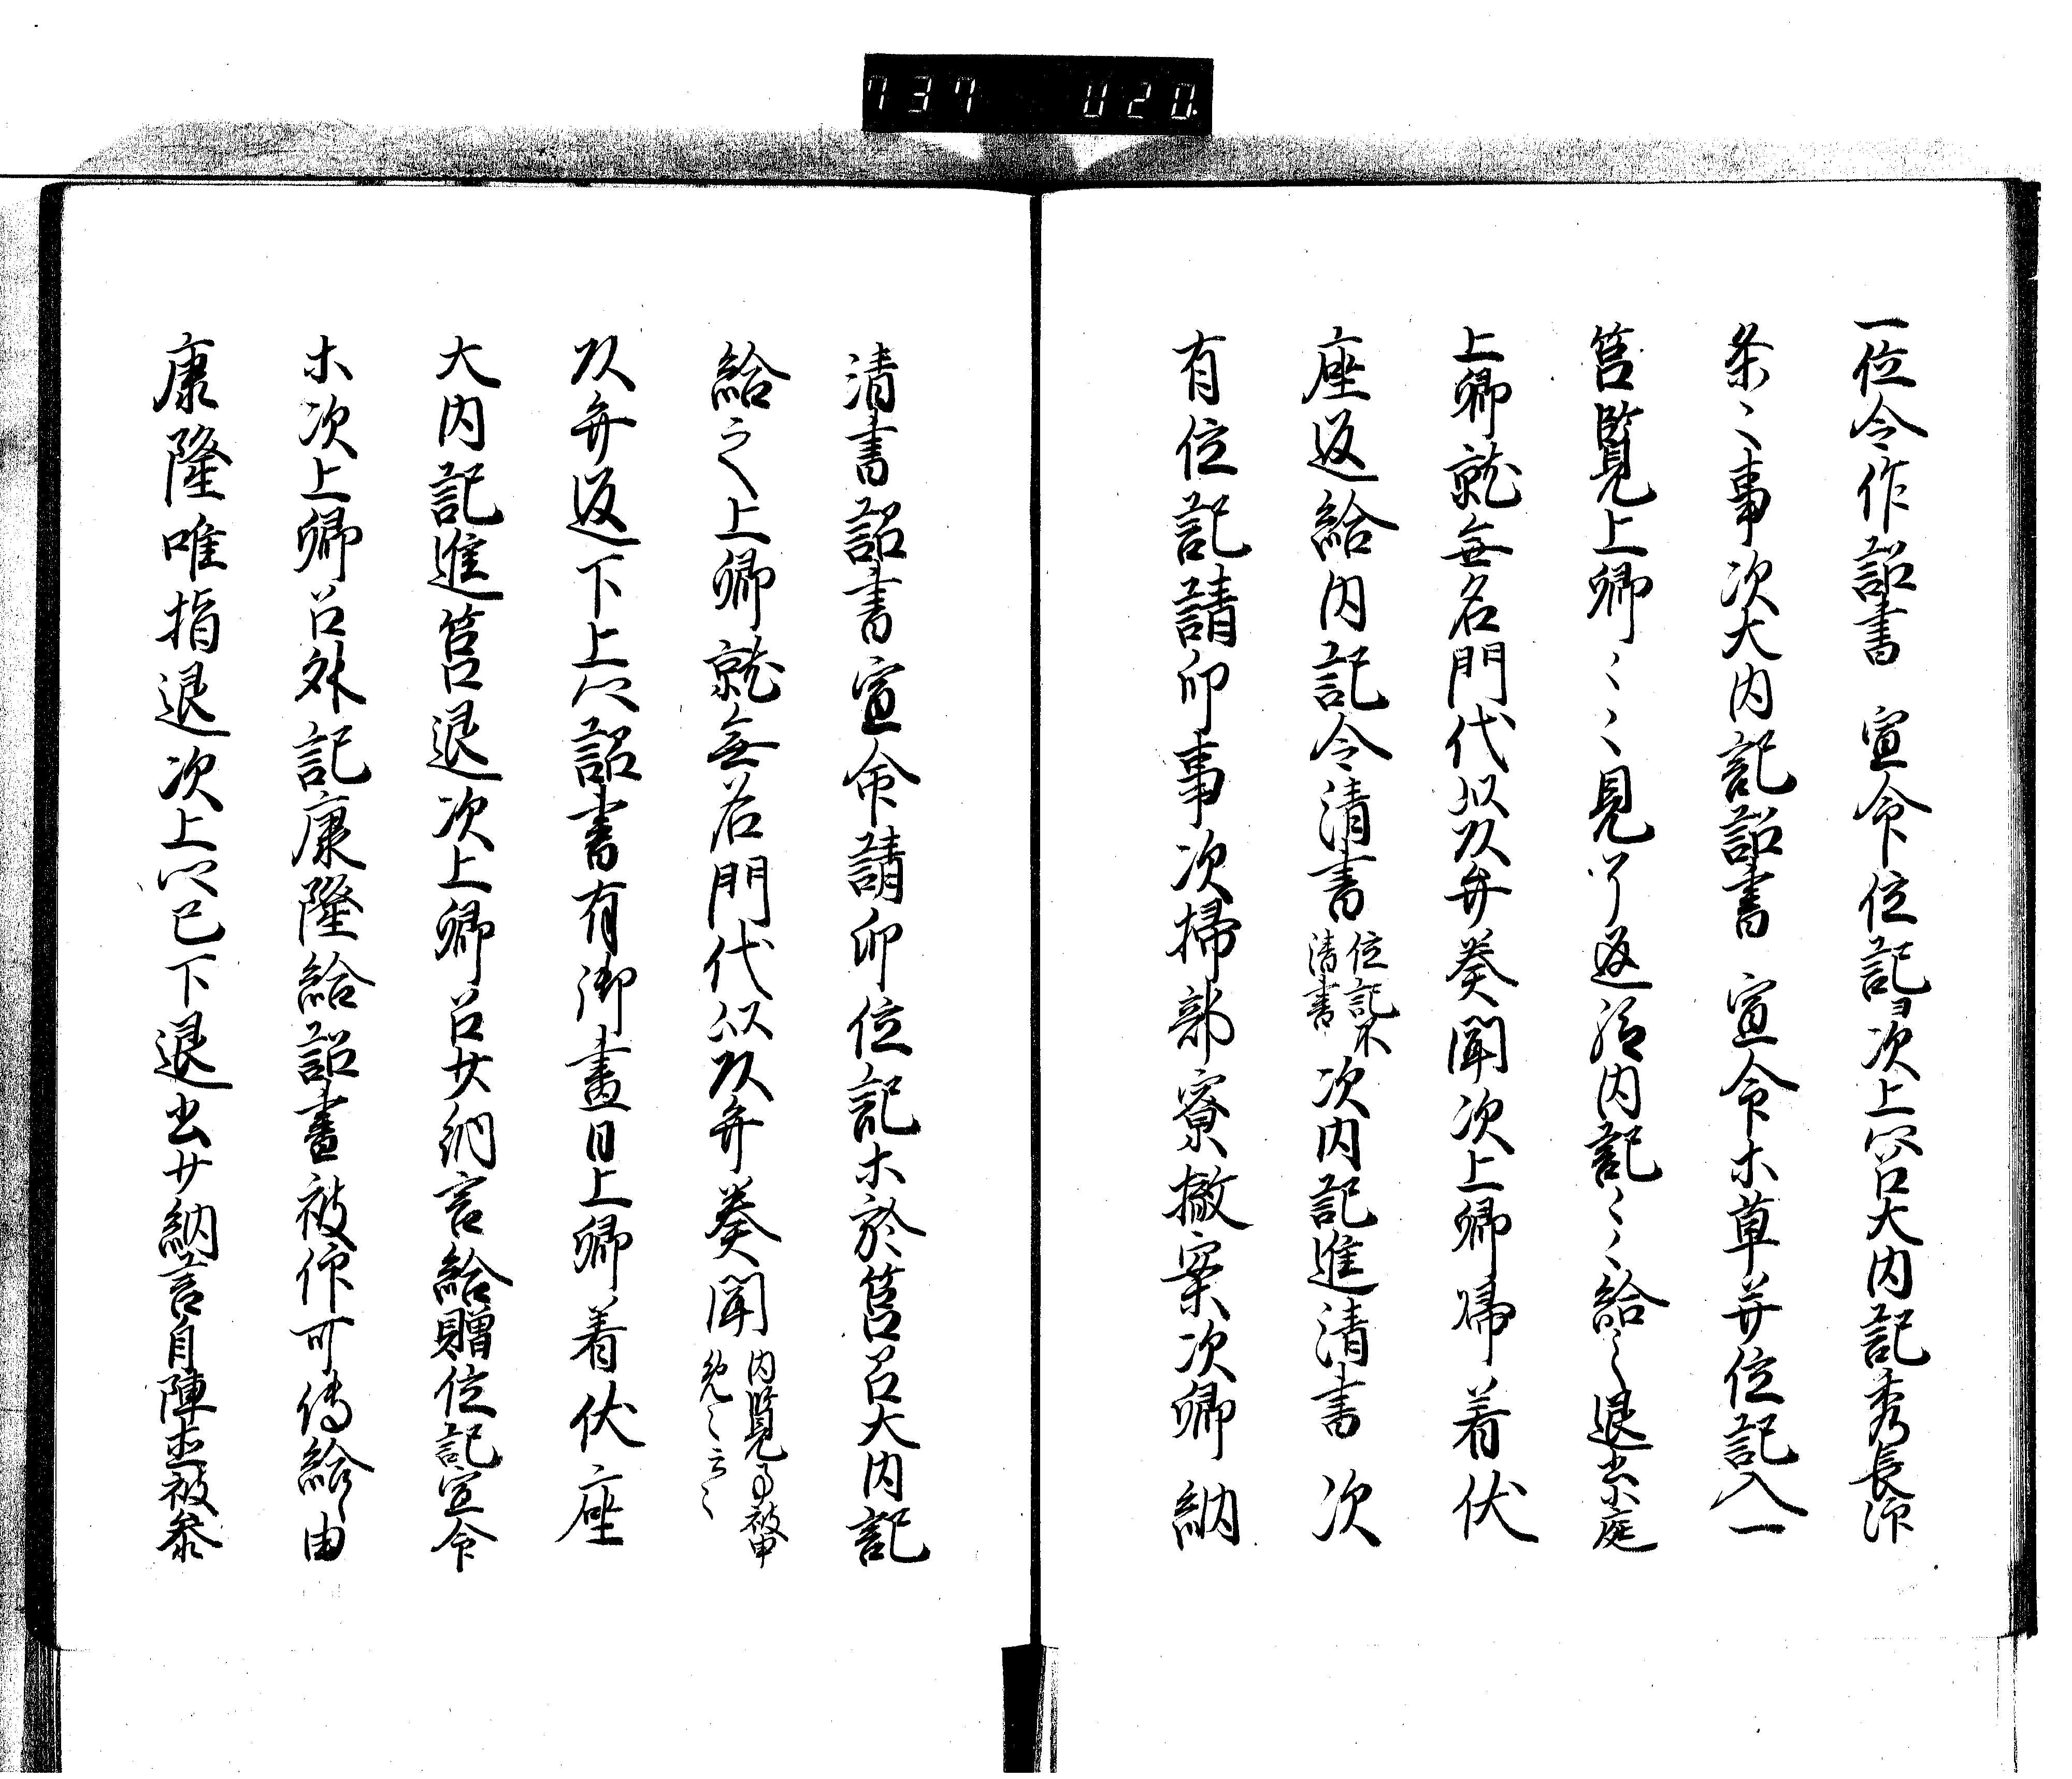 737 020
一位令作詔書 宣命位記ヨ次上卿召大内記秀長仰
条々事次大内記詔書 宣命木草并位記入一
筥覧上卿々々見了返給内記々々給之退出小庭
上卿就無名門代以頭弁奏聞次上卿帰着伏
座返給内記令清書位記不清書次内記進清書 次
有位記請印事次掃部寮撤案次卿 納
清書詔書宣命請印位記木於筥召大内記
給之上卿就無名門代以頭弁奏聞内覧事被申免之云々
頭弁返下上卿詔書有御畫日上卿着伏座
大内記進筥退次上卿召少納言給贈位記宣命
木次上卿召外記康隆給詔書被仰可傳給由
康隆唯指退次上卿已下退出少納言自陣直被参